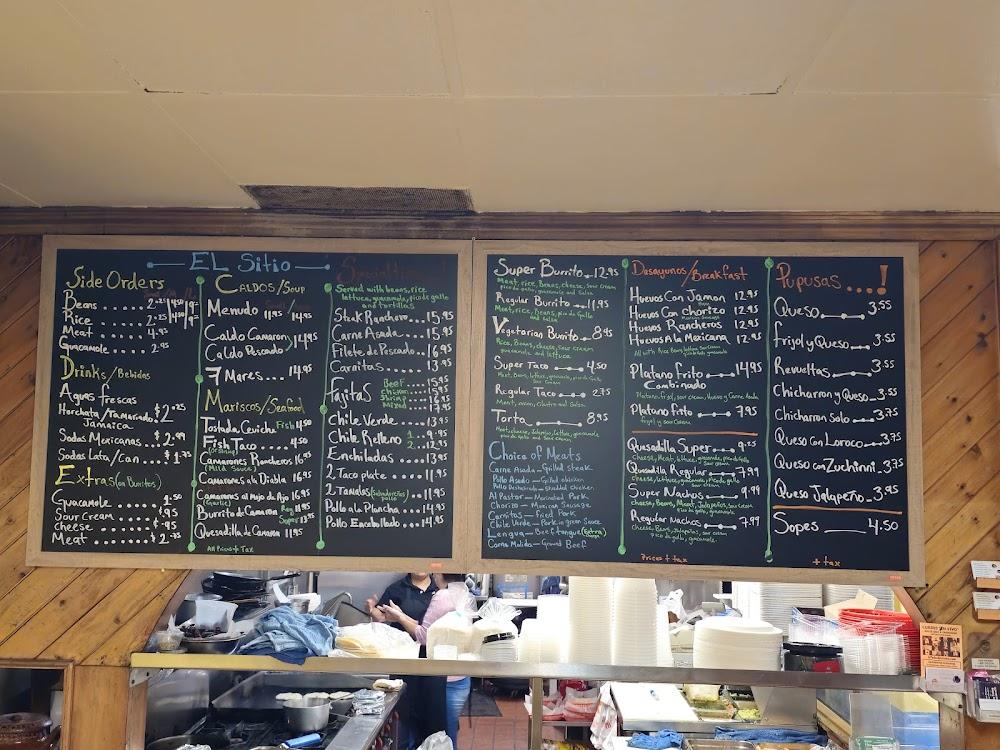 EL Sitio
Side Orders
Beans .... 2.25
Rice ..... 2.25
Meat ..... 4.95
Guacamole .... 2.95
Drinks/Bebidas
Aguas frescas
Horchata/Tamarindo
Jamaica $2.25
Sodas Mexicanas.. $2.99
Sodas Lata/Can...
Extras (on Burritos)
Guacamole ......
Sour Cream ..... $.95
cheese ...... $.95
Meat ....... $2.75
CALDOS/Soup
Menudo 11.95/14.95
Caldo Camaron
Caldo Pescado 14.95
7 Mares... 14.95
Mariscos/Seafood
Tostada Ceviche Fish 4.50
Fish Taco .... 4.50
Camarones Rancheros 16.95
(Mild Sauce)
Camarones a la Diabla 16.95
Camarones al Mojo de Ajo 16.95
(Garlic)
Burrito de Camaron Reg 11.95
Super 13.95
Quesadilla de Camaron 11.95
All Prices + Tax
Served with beans, rice
lettuce, guacamole, pico de gallo
and tortillas
Steak Ranchero... 15.95
Carne Asada... 15.95
Filete de Pescado... 16.95
Carnitas..... 13.95
Fajitas
Beef ... 15.95
Chicken ... 15.95
Shrimp ... 16.95
Mixed ... 17.95
Chile Verde.... 13.95
Chile Relleno 1... 9.95
2... 13.95
Enchiladas .... 13.95
2 Taco plate .... 11.95
2 Tamales (salvadoreños pollo) ... 11.95
Pollo a la Plancha... 14.95
Pollo Encebollado... 14.95
Super Burrito 12.95
Meat, rice, Beans, cheese, sour cream
pico de gallo, guacamole and Salsa
Regular Burrito 11.95
Meat, rice, Beans, pico de Gallo
and salsa
Vegetarian Burrito 8.95
Rice, Beans, cheese, sour cream
guacamole and lettuce
Super Taco 4.50
Meat, Beans, lettuce, guacamole, pico de Gallo,
Sour Cream
Regular Taco 2.75
Meat, onion, cilantro and Salsa
Torta 8.95
Meat, cheese, Jalapeño, lettuce, guacamole
pico de gallo and Sour cream
Choice of Meats
Carne Asada – Grilled steak
Pollo Asado – Grilled chicken
Pollo Deshebrado – Shredded chicken
Al Pastor – Marinated Pork
Chorizo – Mexican Sausage
Carnitas – Fried Pork
Chile Verde – Pork in green Sauce
Lengua – Beef tongue
Carne Molida – Ground Beef
Desayunos/Breakfast
Huevos Con Jamon 12.95
Huevos Con Chorizo 12.95
Huevos Rancheros 12.95
Huevos A la Mexicana 12.95
Platano Frito 14.95
Combinado
Platano, frijol, Sour Cream, Huevo y Carne Asada
Platano Frito 7.95
frijol y Sour Cream
Quesadilla Super 9.25
Cheese, Meat, lettuce, guacamole, pico de Gallo
Sour cream
Quesadilla Regular 7.99
Cheese, lettuce, guacamole, Pico de gallo
Sour cream
Super Nachos 9.99
cheese, Beans, Meat, Jalapeños, Sour cream
Pico de gallo, guacamole
Regular Nachos 7.99
Cheese, Beans, Jalapeños, Sour cream
Pico de gallo, guacamole
Prices + tax
Pupusas...!
Queso 3.55
frijol y Queso 3.55
Revueltas 3.55
Chicharron y Queso 3.55
Chicharron Solo 3.75
Queso Con Loroco 3.75
Queso con Zuchinni 3.75
Queso Jalapeño 3.95
Sopes 4.50
+ tax